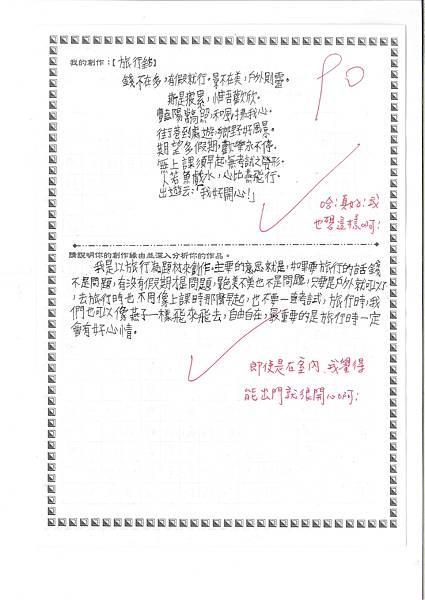 我的創作：【旅行銘】
錢不在多，有假就行。景不在美，戶外則靈。
斯是疲累，惟吾歡欣。
豔陽當空照，和風拂我心。
街巷到處遊，鄉野好風景。
期望多假期，歡樂永不停。
無上課須早起，無考試之勞形。
人若魚戲水，心比燕飛行。
出遊云：「我好開心！」
90
哈！真好！我
也想這樣啊！
請說明你的創作緣由並深入分析你的作品。
我是以旅行為題材來創作。主要的意思就是，如果要旅行的話錢
不是問題，有沒有假期才是問題，景色美不美也不是問題，只要是戶外就可以了
，去旅行時也不用像上課時那麼早起，也不要一直考試，旅行時，我
們也可以像燕子一樣飛來飛去，自由自在，最重要的是旅行時一定
會有好心情。
即使是在室內，我覺得
能出門就很開心啊！